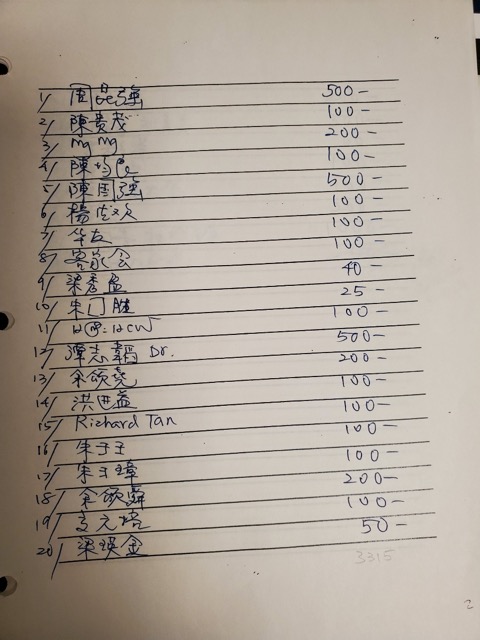 1/ 周昆強 500-
2/ 陳貴茂 100-
3/ mg mg 200-
4/ 陳均 100-
5/ 陳国強 500-
6/ 楊 100-
7/ 华友 100-
8/ 客家会 100-
9/ 梁秀盘 40-
10/ 朱 胜 25-
11/ 100-
12/ 譚志韜 Dr. 500-
13/ 余頌堯 200-
14/ 洪世益 100-
15/ Richard Tan 100-
16/ 朱子玉 100-
17/ 朱子璋 100-
18/ 余 200-
19/ 元培 100-
20/ 梁瑛金 50-
3315
2